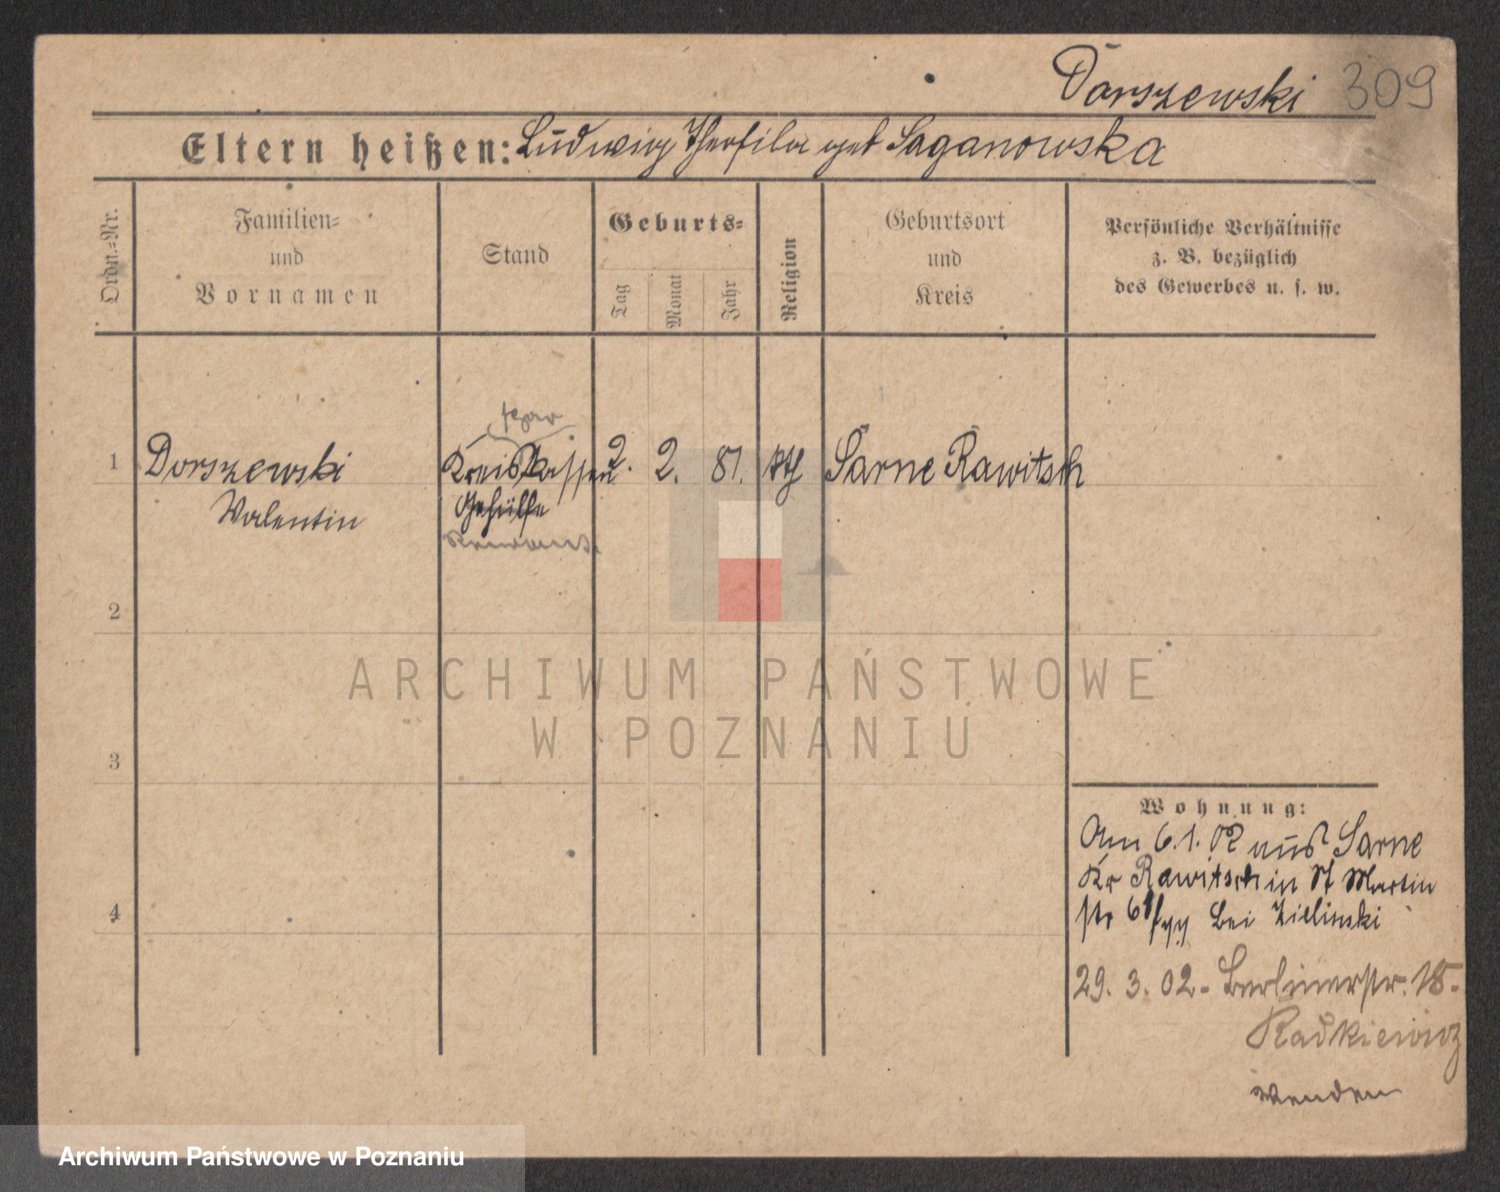 Dorszewski 309
Eltern heißen: Ludwig Theofila geb Saganowska
Ordn.=Nr.
Familien=
und
Vornamen
Stand
Geburts=
Tag
Monat
Jahr
Religion
Geburtsort
und
Kreis
Persönliche Verhältnisse
z. B. bezüglich
des Gewerbes u. s. w.
1 Dorszewski Kreiskassen 2. 2. 81. kth Sarne Rawitsch
Valentin Gehülfe
2
3
4
Wohnung:
Am 6.1.02 aus Sarne
Kr Rawitsch in St Martin
str bei Zielinski
29. 3. 02 - Berlinerstr. 18.
Radkiewicz
Wenden
ARCHIWUM PAŃSTWOWE
W POZNANIU
Archiwum Państwowe w Poznaniu